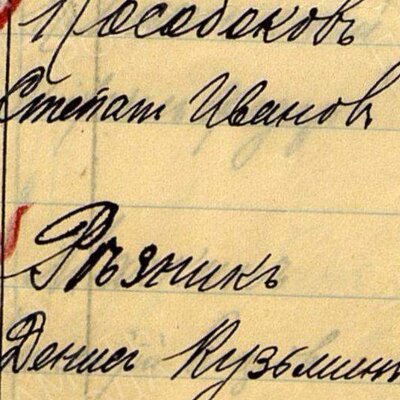 Кособоковъ
Степан Иванов
Рѣзникъ
Денисъ Кузьмин